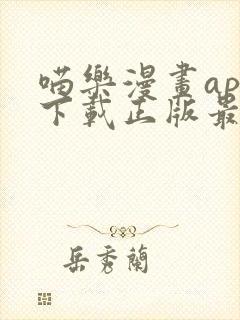 喵樂漫畫ap
下載正版最
岳秀蘭